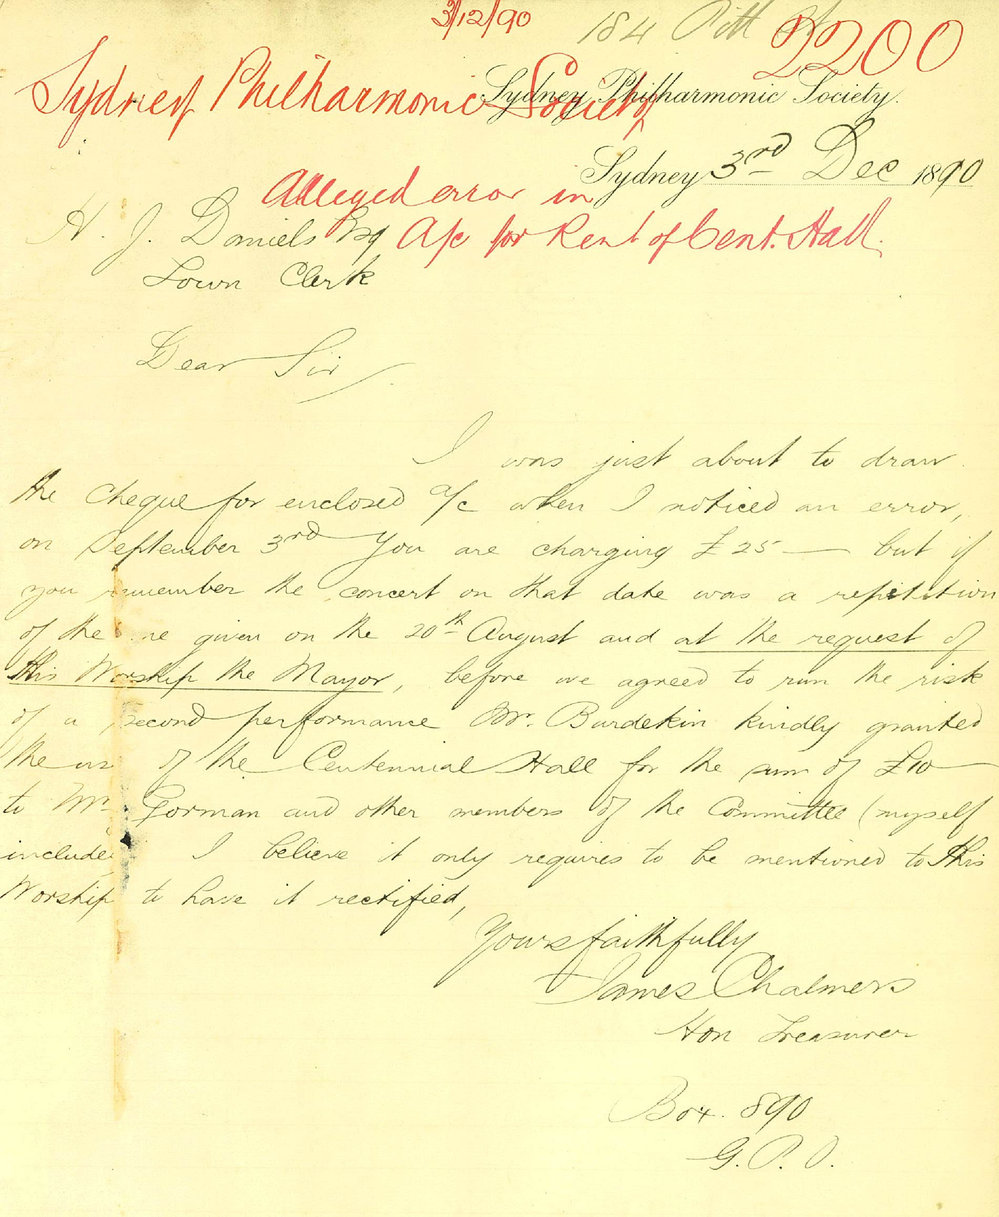 3/12/90
184 Pitt St
2200
Sydney Philharmonic Society
Sydney Philharmonic Society.
Sydney 3rd Dec 1890
Alleged error in
A/c for Rent of Cent. Hall.
H. J. Daniels Esq
Town Clerk
Dear Sir,
I was just about to draw
the cheque for enclosed a/c when I noticed an error,
on September 3rd You are charging £25 — but if
you remember the concert on that date was a repitition
of the one given on the 20th August and at the request of
His Worship the Mayor, before we agreed to run the risk
of a second performance Mr. Burdekin kindly granted
the us of the Centennial Hall for the sum of £10 —
to Mr. Gorman and other members of the Committee (myself
include I believe it only requires to be mentioned to His
Worship to have it rectified,
Yours faithfully
James Chalmers
Hon Treasurer
Box. 890
G. P. O.